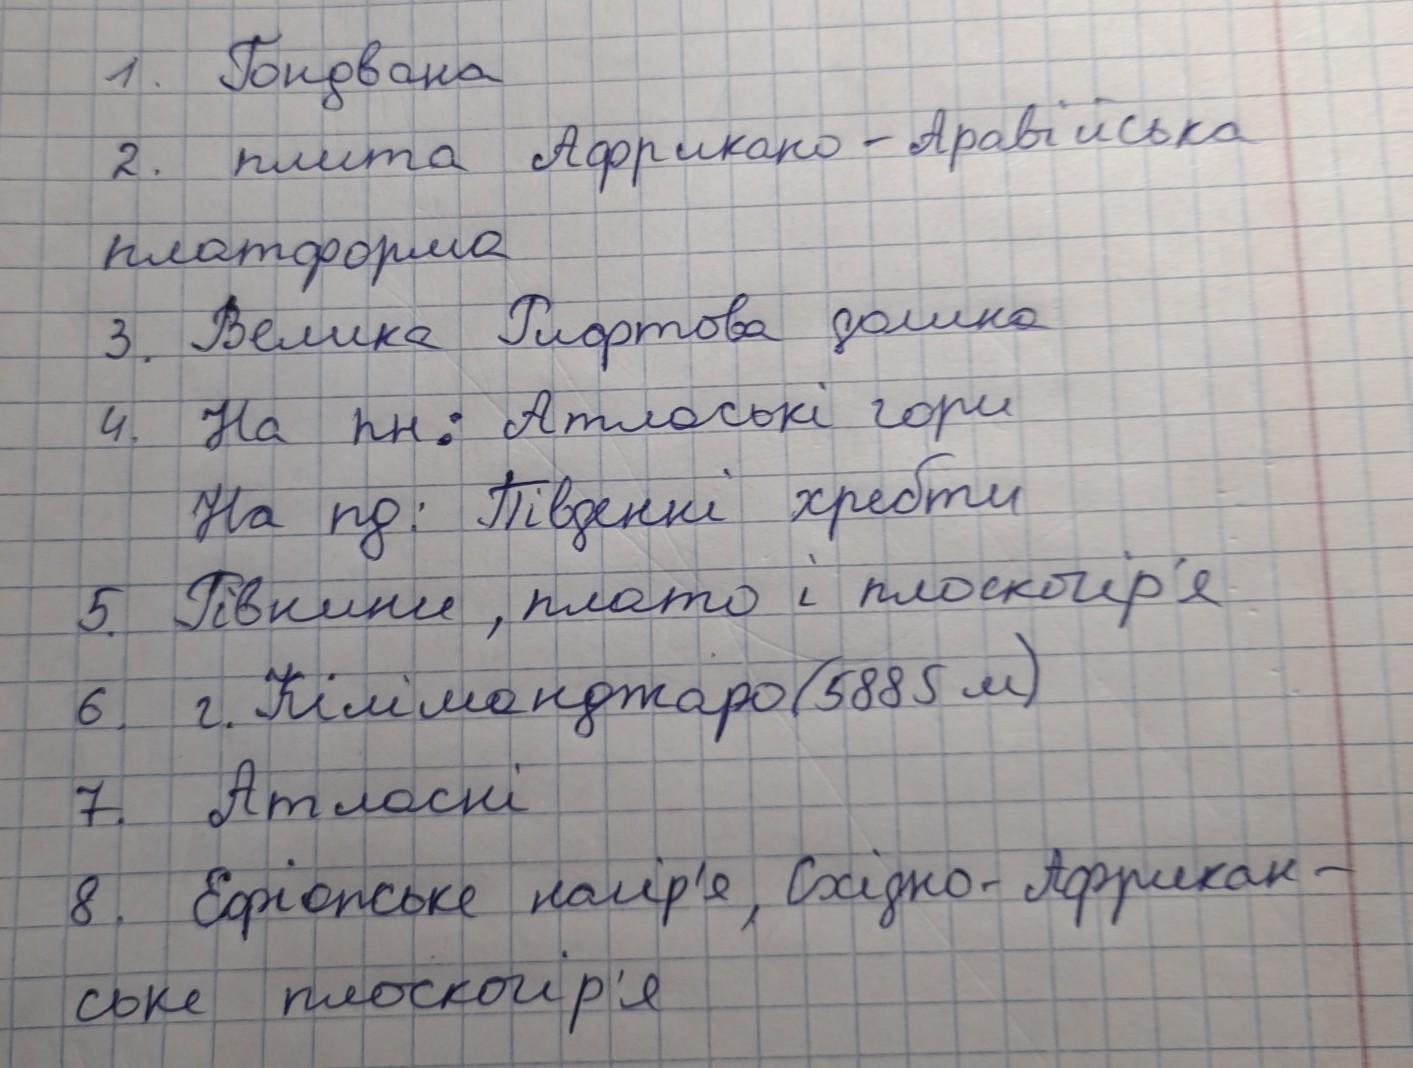 1. Гондвана
2. плита Африкано-Аравійська
платформа
3. Велика Рифтова долина
4. На пн: Атлаські гори
На пд: Південні хребти
5. Рівнини, плато і плоскогір'я
6. г. Кіліманджаро (5885 м)
7. Атласні
8. Ефіопське нагір'я, Східно-Африкан-
ське плоскогір'я